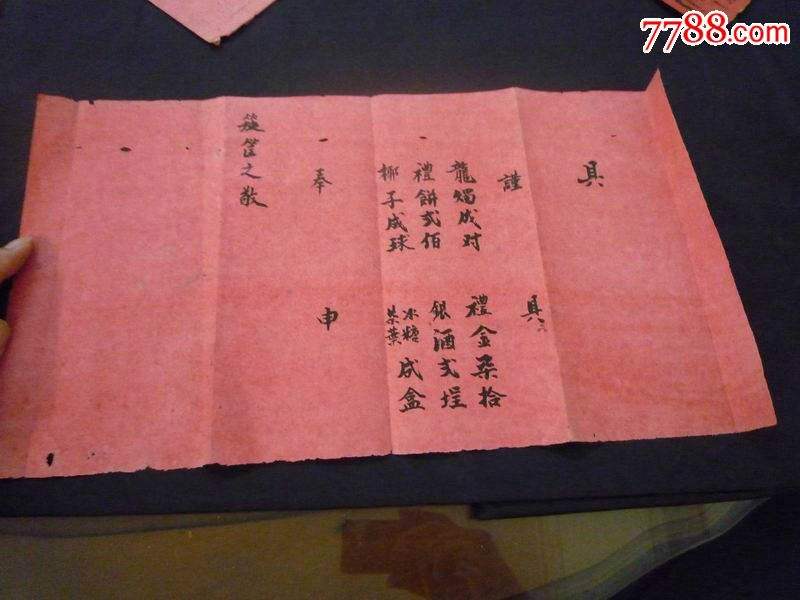 7788.com
具
謹具
龍燭成对
禮金柒拾
禮餅弍佰
銀酒弍埕
椰子成球
冰糖茶葉成盒
奉申
筐之敬